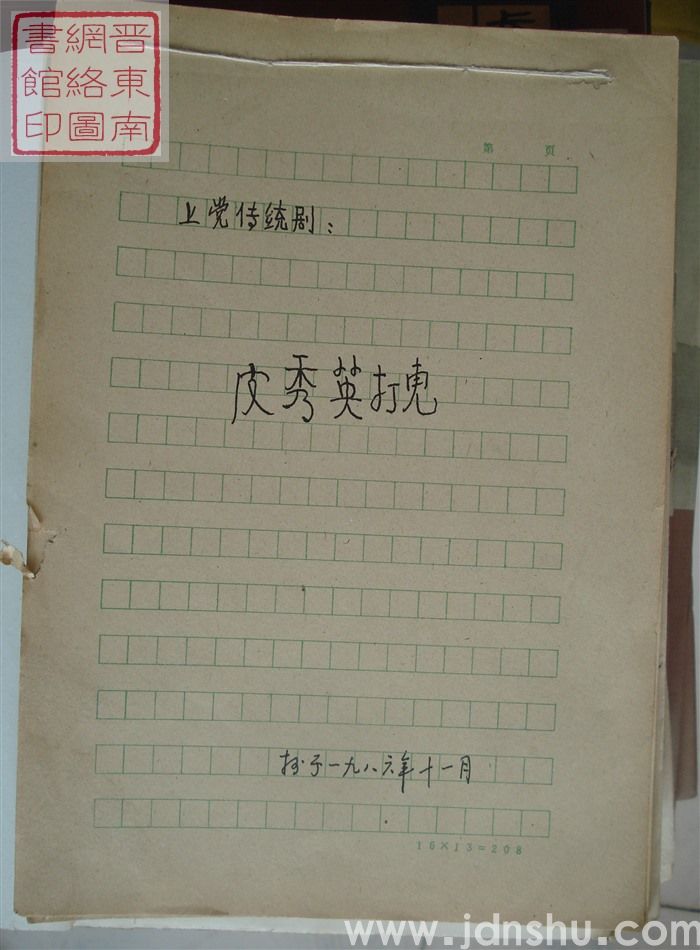 晋東南
網絡圖
書館印
第 页
上党传统剧：
皮秀英打虎
抄于一九八六年十一月
16×13=208
www.jdnshu.com